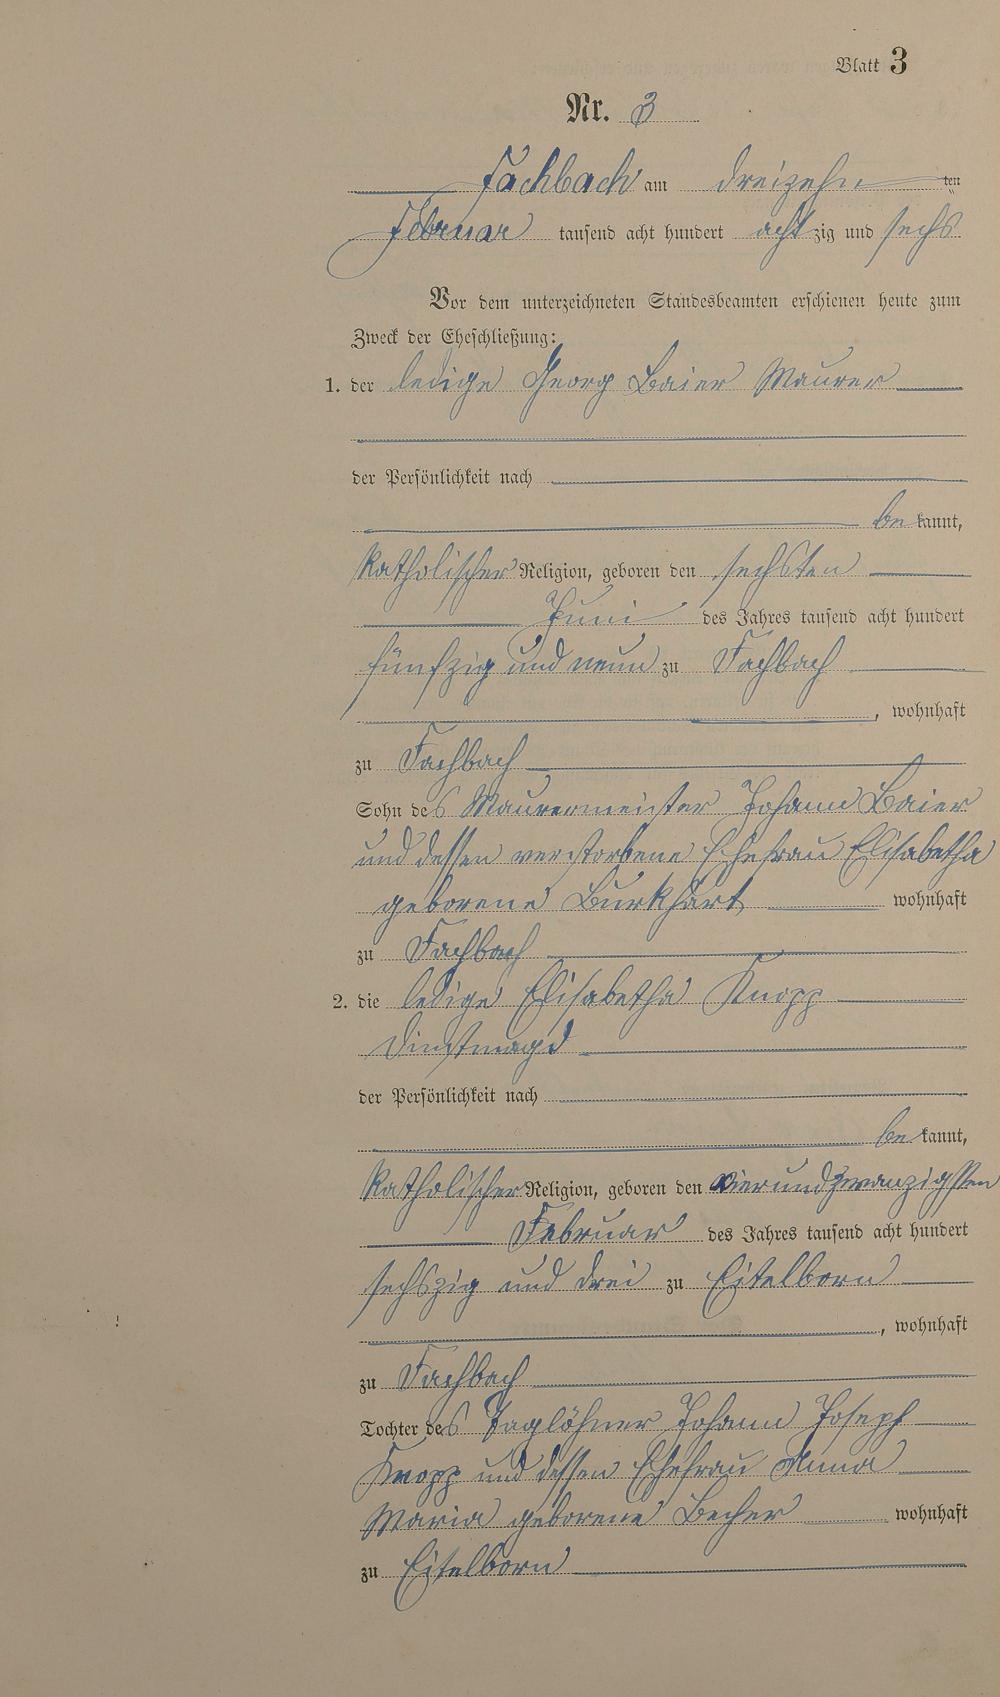 Blatt 3
Nr. 3
Fachbach am dreizehn ten
Februar tausend acht hundert acht zig und sechs
Vor dem unterzeichneten Standesbeamten erschienen heute zum
Zweck der Eheschließung:
1. der ledige Georg Baier Maurer
der Persönlichkeit nach
be kannt,
katholischer Religion, geboren den sechsten
Juni des Jahres tausend acht hundert
fünfzig und neun zu Fachbach
, wohnhaft
zu Fachbach
Sohn des Maurermeister Johann Baier
und dessen verstorbene Ehefrau Elisabetha
geborene Burkhart wohnhaft
zu Fachbach
2. die ledige Elisabetha Knopp
Dienstmagd
der Persönlichkeit nach
be kannt,
katholischer Religion, geboren den vierundzwanzigsten
Februar des Jahres tausend acht hundert
sechszig und drei zu Eitelborn
, wohnhaft
zu Fachbach
Tochter des Taglöhner Johann Joseph
Knopp und dessen Ehefrau Anna
Maria geborene Becher wohnhaft
zu Eitelborn